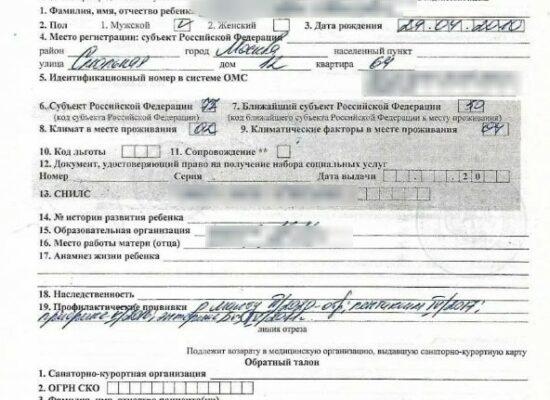 1. Фамилия, имя, отчество ребенка
2. Пол 1. Мужской V 2. Женский 3. Дата рождения 29.04.2010
4. Место регистрации: субъект Российской Федерации
район город Москва населенный пункт
улица дом 12 квартира 64
5. Идентификационный номер в системе ОМС
6. Субъект Российской Федерации 77 7. Ближайший субъект Российской Федерации 50
(код субъекта Российской Федерации) (код ближайшего субъекта Российской Федерации к месту проживания)
8. Климат в месте проживания 02 9. Климатические факторы в месте проживания 04
10. Код льготы 11. Сопровождение **
12. Документ, удостоверяющий право на получение набора социальных услуг
Номер Серия Дата выдачи . . 2 0
13. СНИЛС
14. № истории развития ребенка
15. Образовательная организация
16. Место работы матери (отца)
17. Анамнез жизни ребенка
18. Наследственность
19. Профилактические прививки
линия отреза
Подлежит возврату в медицинскую организацию, выдавшую санаторно-курортную карту
Обратный талон
1. Санаторно-курортная организация
2. ОГРН СКО